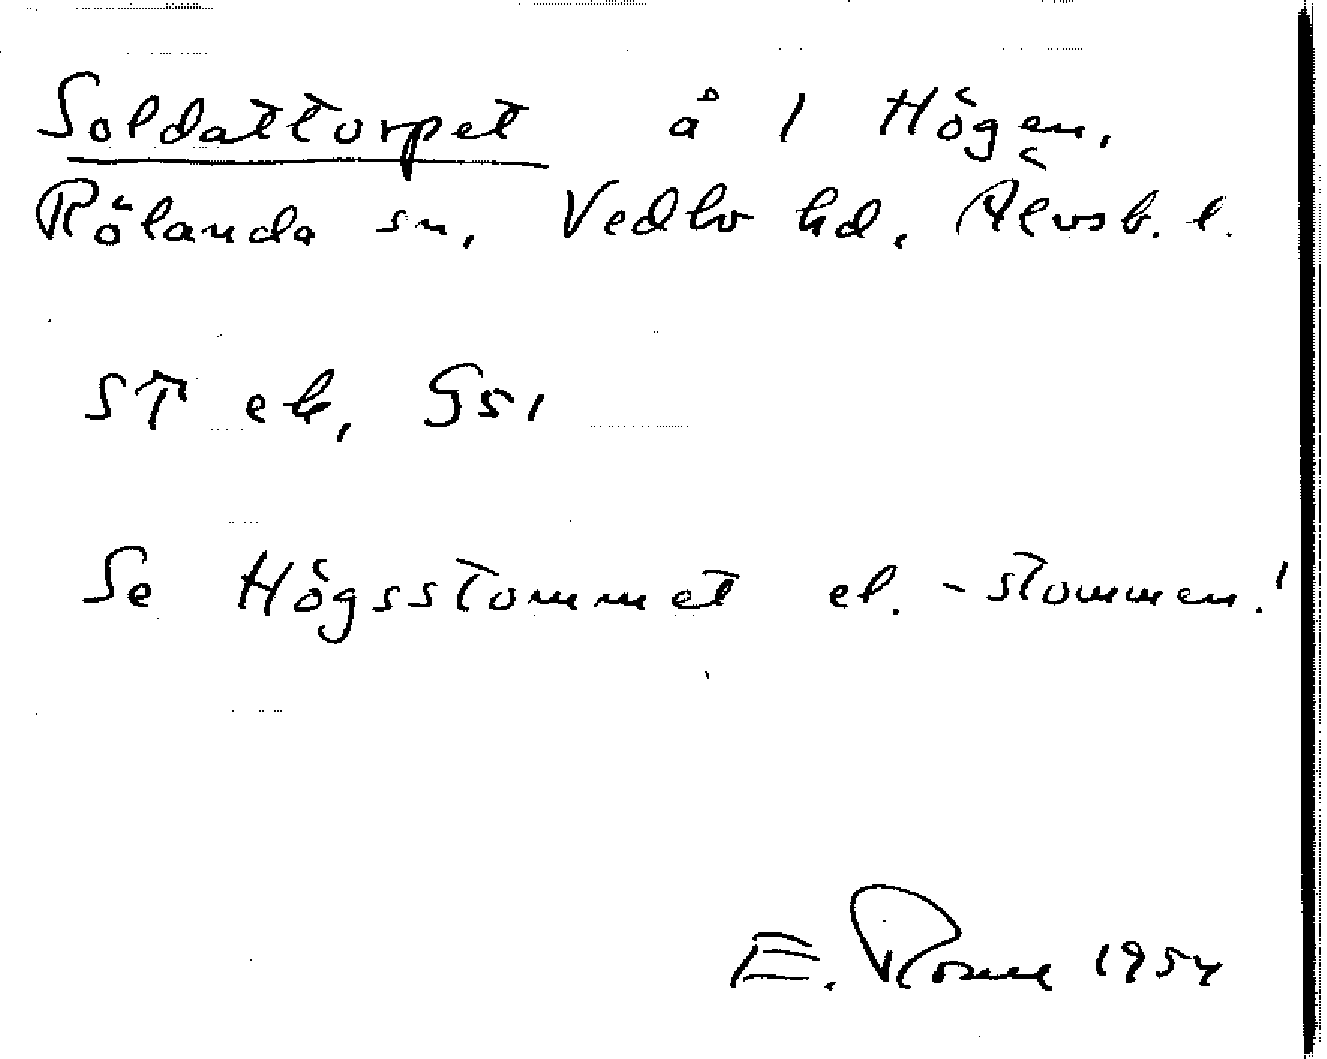 Soldattorpet å 1 Högen.
Rölanda sn, Vedbo hd, Älvsb. l.
ST ek, G51
Se Högsstommet el. -stommen!
E. 1954